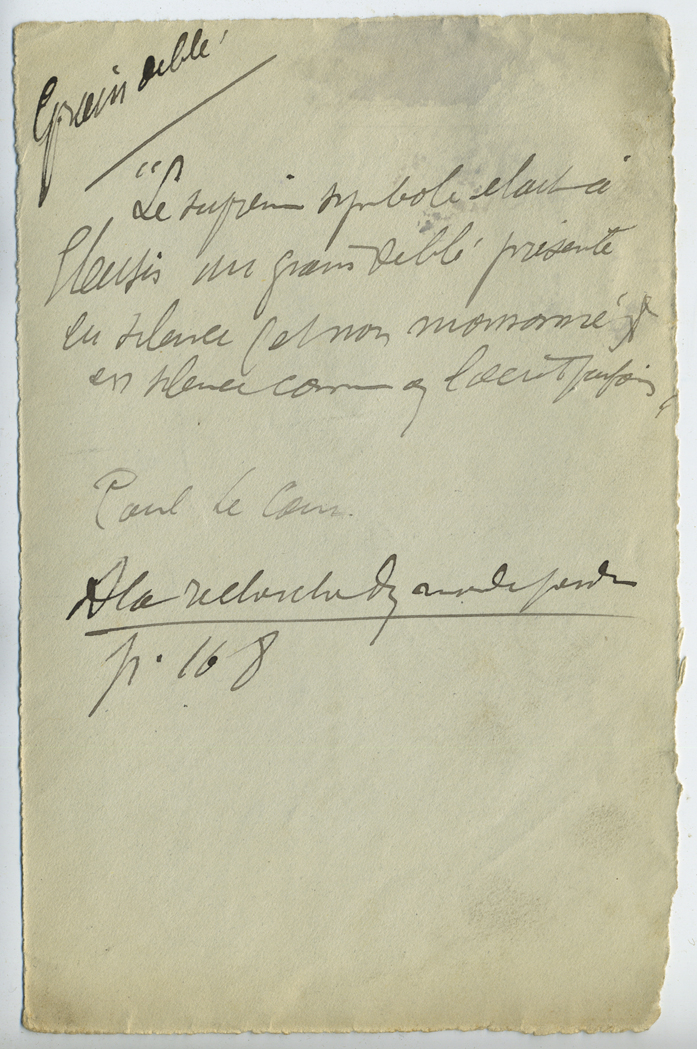 Grain de blé
"Le suprême symbole était à
Eleusis un grain de blé présenté
en silence (et non moissonné
en silence comme on l'écrit parfois
Paul Le Cour.
A la recherche d'un monde perdu
p. 168